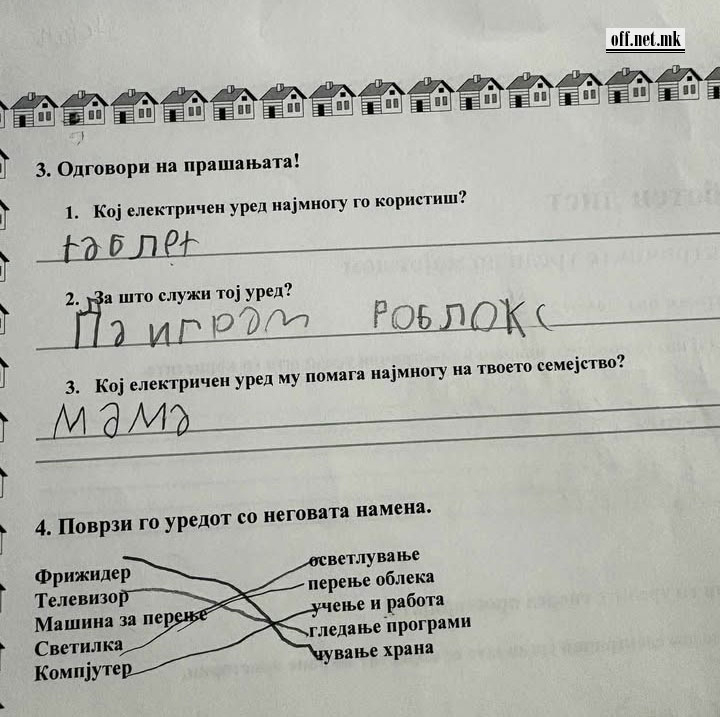 off.net.mk
3. Одговори на прашањата!
1. Кој електричен уред најмногу го користиш?
таблет
2. За што служи тој уред?
Да играм роблокс
3. Кој електричен уред му помага најмногу на твоето семејство?
мама
4. Поврзи го уредот со неговата намена.
Фрижидер осветлување
Телевизор перење облека
Машина за перење учење и работа
Светилка гледање програми
Компјутер чување храна